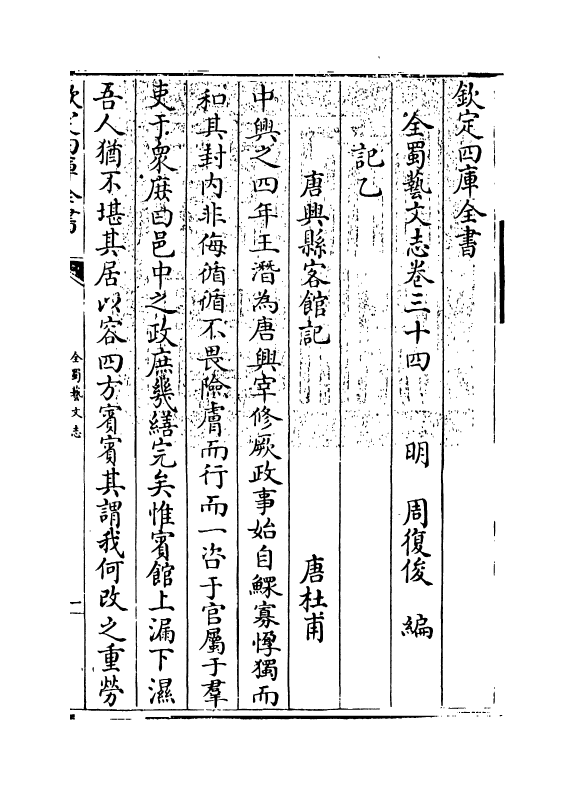 欽定四庫全書
全蜀藝文志卷三十四　明　周復俊　編
記乙
唐興縣客館記　唐杜甫
中興之四年王潛為唐興宰修厥政事始自鰥寡惸獨而
和其封内非侮循循不畏險膚而行而一咨于官屬于羣
吏于衆庶曰邑中之政庶幾繕完矣惟賓館上漏下濕
吾人猶不堪其居以容四方賓賓其謂我何改之重勞
欽定四庫全書
全蜀藝文志
一